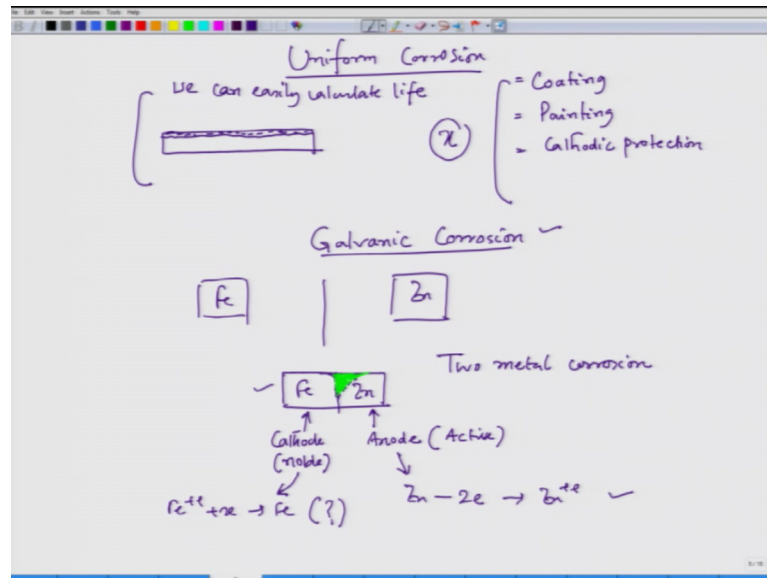 File Edit View Insert Actions Tools Help
Uniform Corrosion
we can easily calculate life
x
= Coating
= Painting
= Cathodic protection
Galvanic Corrosion
Fe
Zn
Two metal corrosion
Fe
Zn
Cathode
(noble)
Anode (Active)
Fe⁺⁺ + 2e → Fe (?)
Zn - 2e → Zn⁺⁺